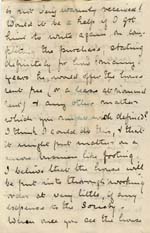 is not very warmly received!
Would it be a help if I got
him to write again on com-
pleting the purchase, stating
definitely for how many
years he would offer the house
rent free (or a lease at nominal
rent) & any other matter
which you might wish defined?
I think I could do this, & that
it might put matters on a
more business like footing.
I believe that the house will
be put into thorough working
order at very little, if any
expense to the Society.
When once you see the house